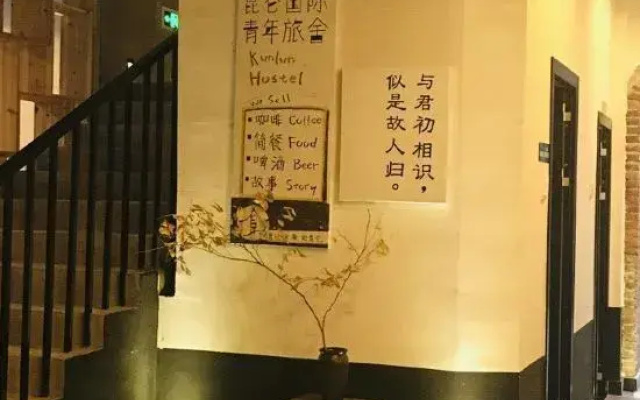 昆仑国际
青年旅舍
Kunlun
Hostel
Sell
·咖啡 Coffee
·简餐 Food
·啤酒 Beer
·故事 Story
与君初相识，
似是故人归。